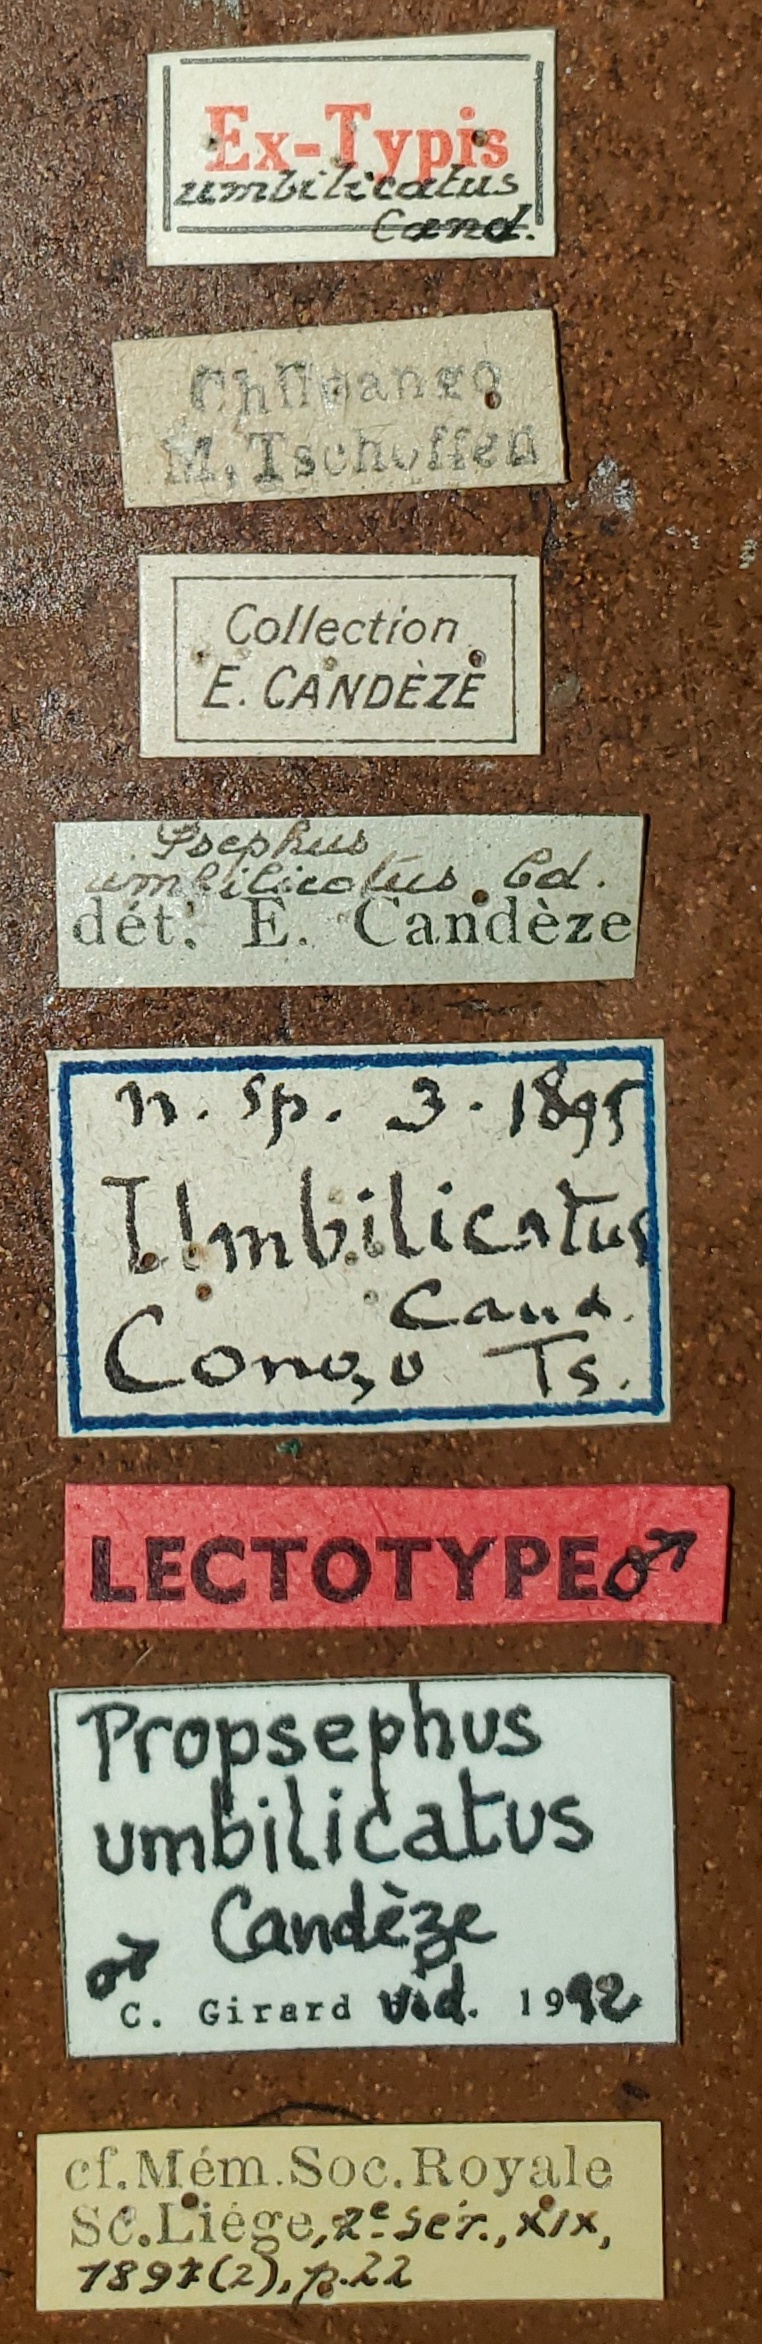 Ex-Typis
umbilicatus
Cand.
Chiloango
M. Tschoffen
Collection
E. CANDÈZE
Psephus
umbilicatus Cd.
dét. E. Candèze
n. sp. 3. 1895
Umbilicatus
Cand.
Congo Ts.
LECTOTYPE♂
Propsephus
umbilicatus
Candèze
♂
C. Girard vid. 1992
cf.Mém.Soc.Royale
Sc.Liége, 2e sér., XIX,
1897(2), p.22